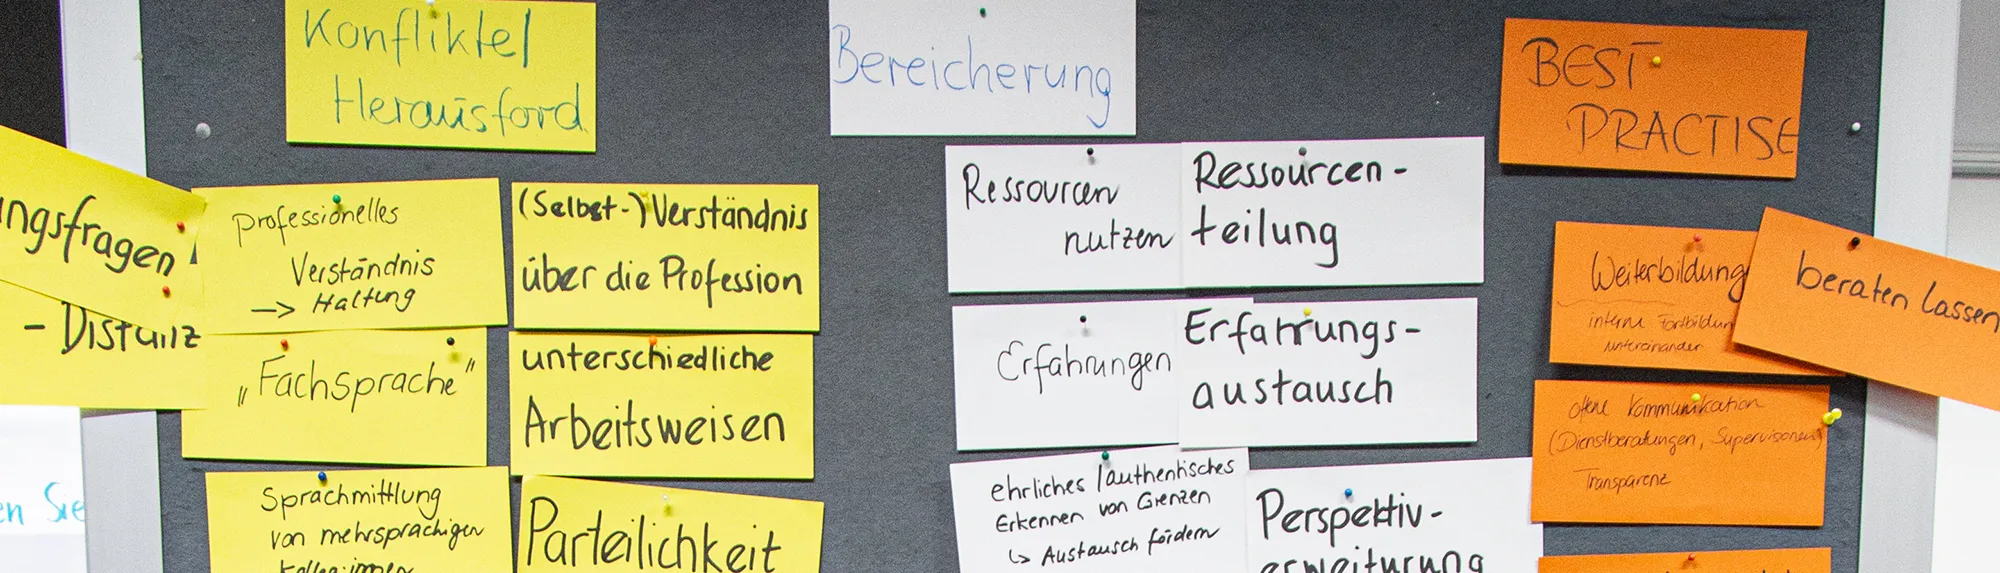 Konflikte/
Herausford.
Bereicherung
BEST
PRACTISE
ngsfragen
- Distanz
professionelles
Verständnis
→ Haltung
„Fachsprache"
Sprachmittlung
von mehrsprachigen
(Selbst-)Verständnis
über die Profession
unterschiedliche
Arbeitsweisen
Parteilichkeit
Ressourcen
nutzen
Ressourcen-
teilung
Erfahrungen
Erfahrungs-
austausch
ehrliches/authentisches
Erkennen von Grenzen
↳ Austausch fördern
Perspektiv-
erweiterung
Weiterbildung
interne Fortbildun
untereinander
beraten lassen
offene Kommunikation
(Dienstberatungen, Supervisionen)
Transparenz
en Sie